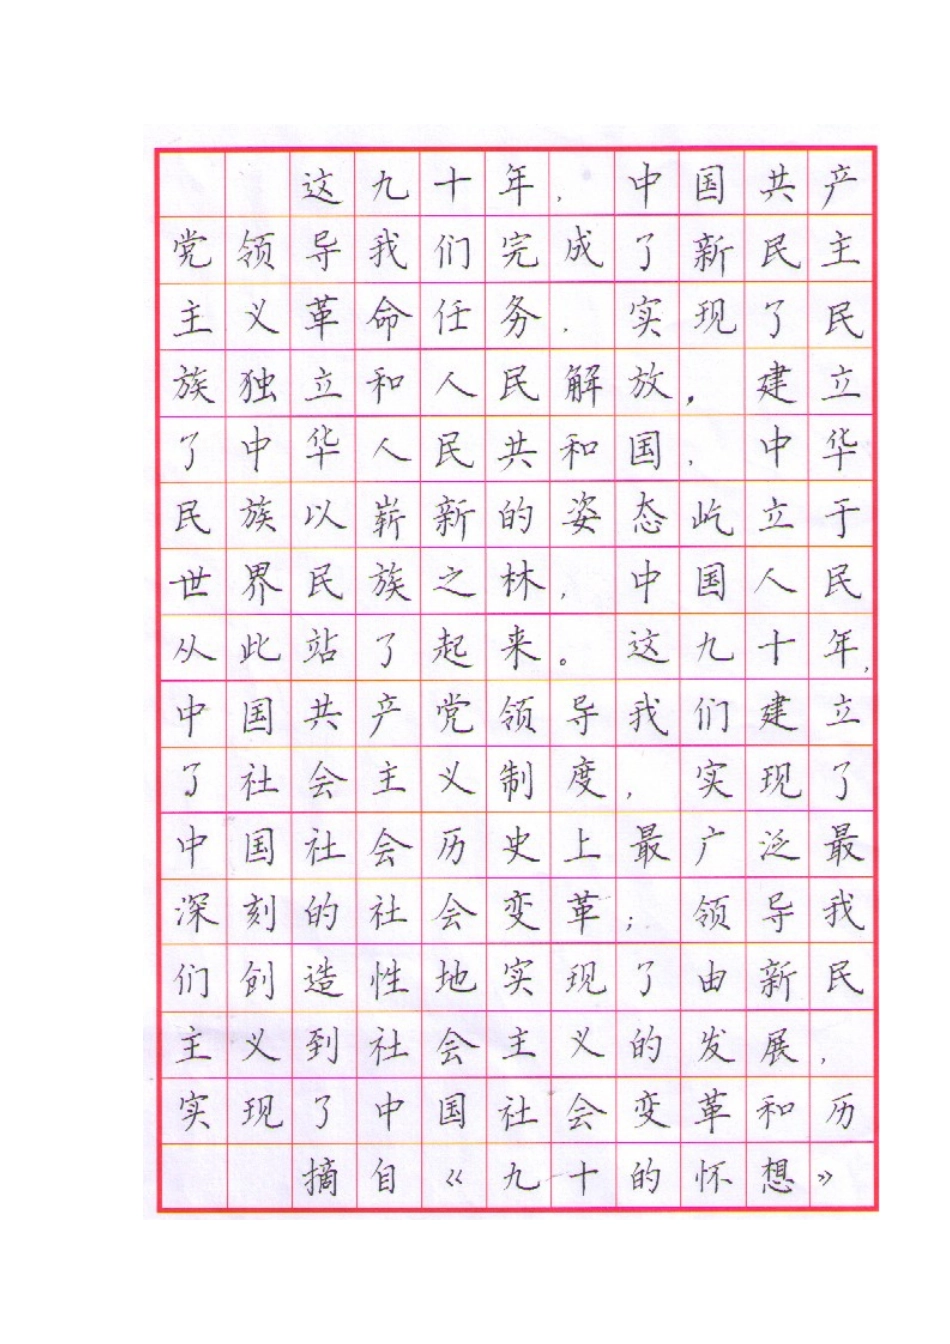 这九十年，中国共产
党领导我们完成了新民主
主义革命任务，实现了民
族独立和人民解放，建立
了中华人民共和国，中华
民族以崭新的姿态屹立于
世界民族之林，中国人民
从此站了起来。这九十年，
中国共产党领导我们建立
了社会主义制度，实现了
中国社会历史上最广泛最
深刻的社会变革；领导我
们创造性地实现了由新民
主义到社会主义的发展，
实现了中国社会变革和历
摘自《九十的怀想》